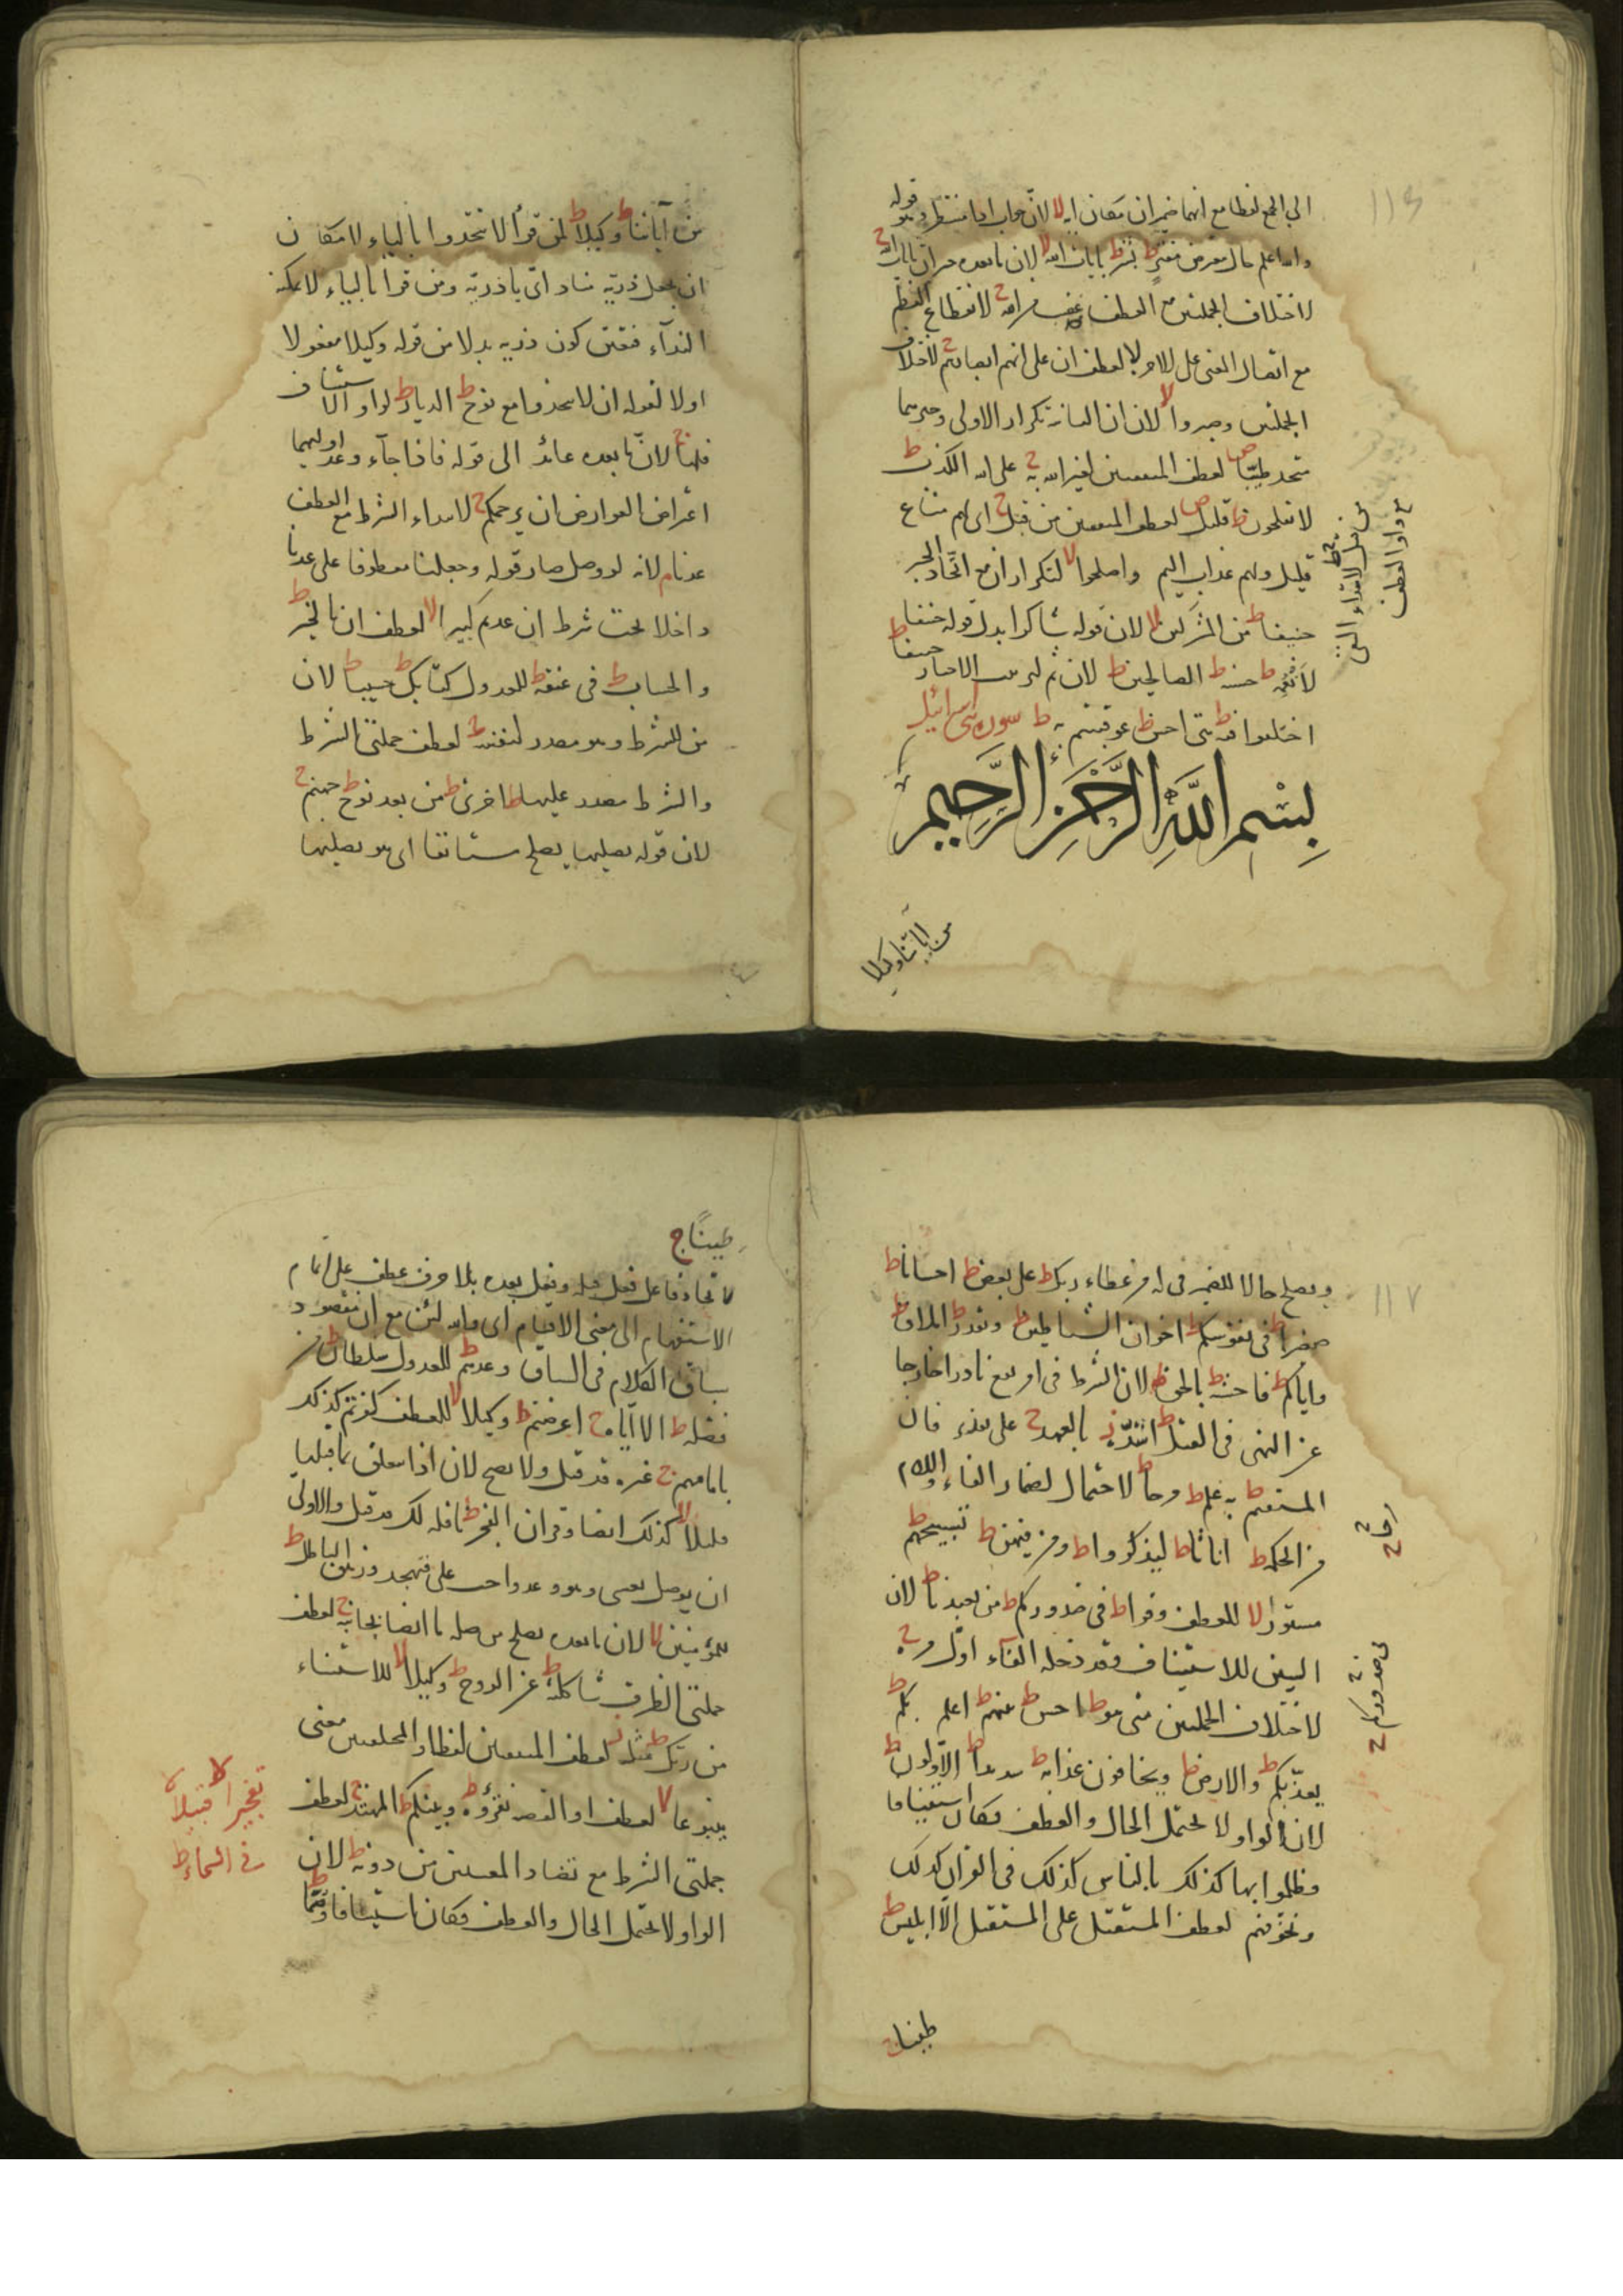 ١١٦
الى الجمع لفظا مع انهما ضميران مكان اية لا لان جواب اذا منتظر وهو قوله
والله اعلم حال معترض مفتر ط بشر ط بايات الله لا لان ما بعده خبر ان بايات الله ج
لاختلاف الجملتين مع العطف غضب من الله ج لانقطاع النظم
مع اتصال المعنى على للاخرة لا لعطف ان على انهم ابصارهم ج لاختلاف
الجملتين وصبروا لا لان ان الثانية تكرار الاولى وخبرهما
متحد طيبا ص لعطف المتفقتين لغير الله به ج على الله الكذب ط
لا يفلحون ط قليل ص لعطف المتفقتين من قبل ج اى لهم متاع
قليل ولهم عذاب اليم واصلحوا لا لتكرار ان مع اتحاد الخبر
حنيفا ط من المشركين لا لان قوله شاكرا بدل قوله حنيفا
لانعمه ط حسنة ط الصالحين ط لان ثم لترتيب الاخبار حنيفا ط
اختلفوا فيه ط هى احسن ط عوقبتم به ط سورة بنى اسرائيل
بِسْمِ اللَّهِ الرَّحْمَنِ الرَّحِيمِ
من اياتنا وكيلا
من آياتنا ط وكيلا ط لمن قرأ الا تتخذوا بالتاء لامكان
ان يجعل ذرية منادى اى يا ذرية ومن قرا بالياء لا يمكنه
النداء فتعين كون ذرية بدلا من قوله وكيلا مفعولا
اولا لقوله ان لا يتخذوا مع نوح ط الديار ط لواو الاستيناف
فلها ج لان ما بعده عائد الى قوله فاذا جاء وعد اوليهما
اعتراض العوارض ان يرحمكم ج لابتداء الشرط مع العطف
عدنا م لانه لو وصل صار قوله وجعلنا معطوفا على عدنا
داخلا تحت شرط ان عدتم كبيرا لا لعطف ان بالخير ط
والحساب ط فى عنقه ط للعدول كتابك ط حسيبا ط لان
من للشرط وهو مصدر لنفسه ج لعطف جملتى الشرط
والشرط مصدر عليها ط اخرى ط من بعد نوح ط جهنم ج
لان قوله يصليها يصلح مستانفا اى هو يصليها
١١٧
ويصلح حالا للضمير فى له من عطاء ربك ط على بعض ط احسانا ط
صغيرا ط فى نفوسكم ط اخوان الشياطين ط ويقدر ط املاق ط
واياكم ط فاحشة ط بالحق ط لان الشرط فى امر يقع نادرا خارجا
عن النهى فى القتل ط اشده ص بالعهد ج على تقدير فان
المستقيم ط به علم ط مرحا ط لاحتمال اضمار الفاء واللام
من الحكمة ط اناثا ط ليذكروا ط ومن فيهن ط تسبيحهم ط
مستورا لا للعطف وقرا ط فى صدوركم ط من يعيدنا ط لان
السين للاستيناف وقد دخله الفاء اول مرة ج
لاختلاف الجملتين متى هو ط احسن ط بينهم ط اعلم بكم ط
يعذبكم ط والارض ط ويخافون عذابه ط الاولون ط
لان الواو لا يحتمل الحال والعطف فكان استينافا
فظلموا بها كذلك بالناس كذلك فى القران كذلك
ونخوفهم لعطف المستقبل على المستقبل الا ابليس ط
طينا ج
طينا ج
لاتحاد فاعل فعل قبله وفعل بعده بلا حرف عطف على اتمام
الاستفهام الى معنى الاقسام اى والله لئن مع ان مقصود
سياق الكلام فى السياق وعدهم ط للعدول سلطان ط من
فضله ط الا اياه ج اعرضتم ط وكيلا لا للعطف كفرتم كذلك
بامامهم ج غيره قد قيل ولا يصح لان اذا متعلق بما قبلها
قليلا لا كذلك ايضا وقران الفجر ط نافلة لك قد قيل والاولى
ان يوصل بعسى وهو وعد واجب على فتهجد وزهق الباطل ط
للمؤمنين لا لان ما بعده يصلح من صلة ما ايضا بجانبه ج لعطف
جملتى الظرف شاكلته ط عن الروح ط وكيلا لا للاستثناء
من ربك ط مثله لعطف المتفقتين لفظا والمختلفتين معنى
ينبوعا لا لعطف او القصة نقرؤه ط وبينكم ط المهتد ج لعطف
جملتى الشرط مع تضاد المعنيين من دونه ط لان
الواو لا يحتمل الحال والعطف فكان استينافا وصما ط
تفجيرا لا قبيلا لا
فى السماء ط